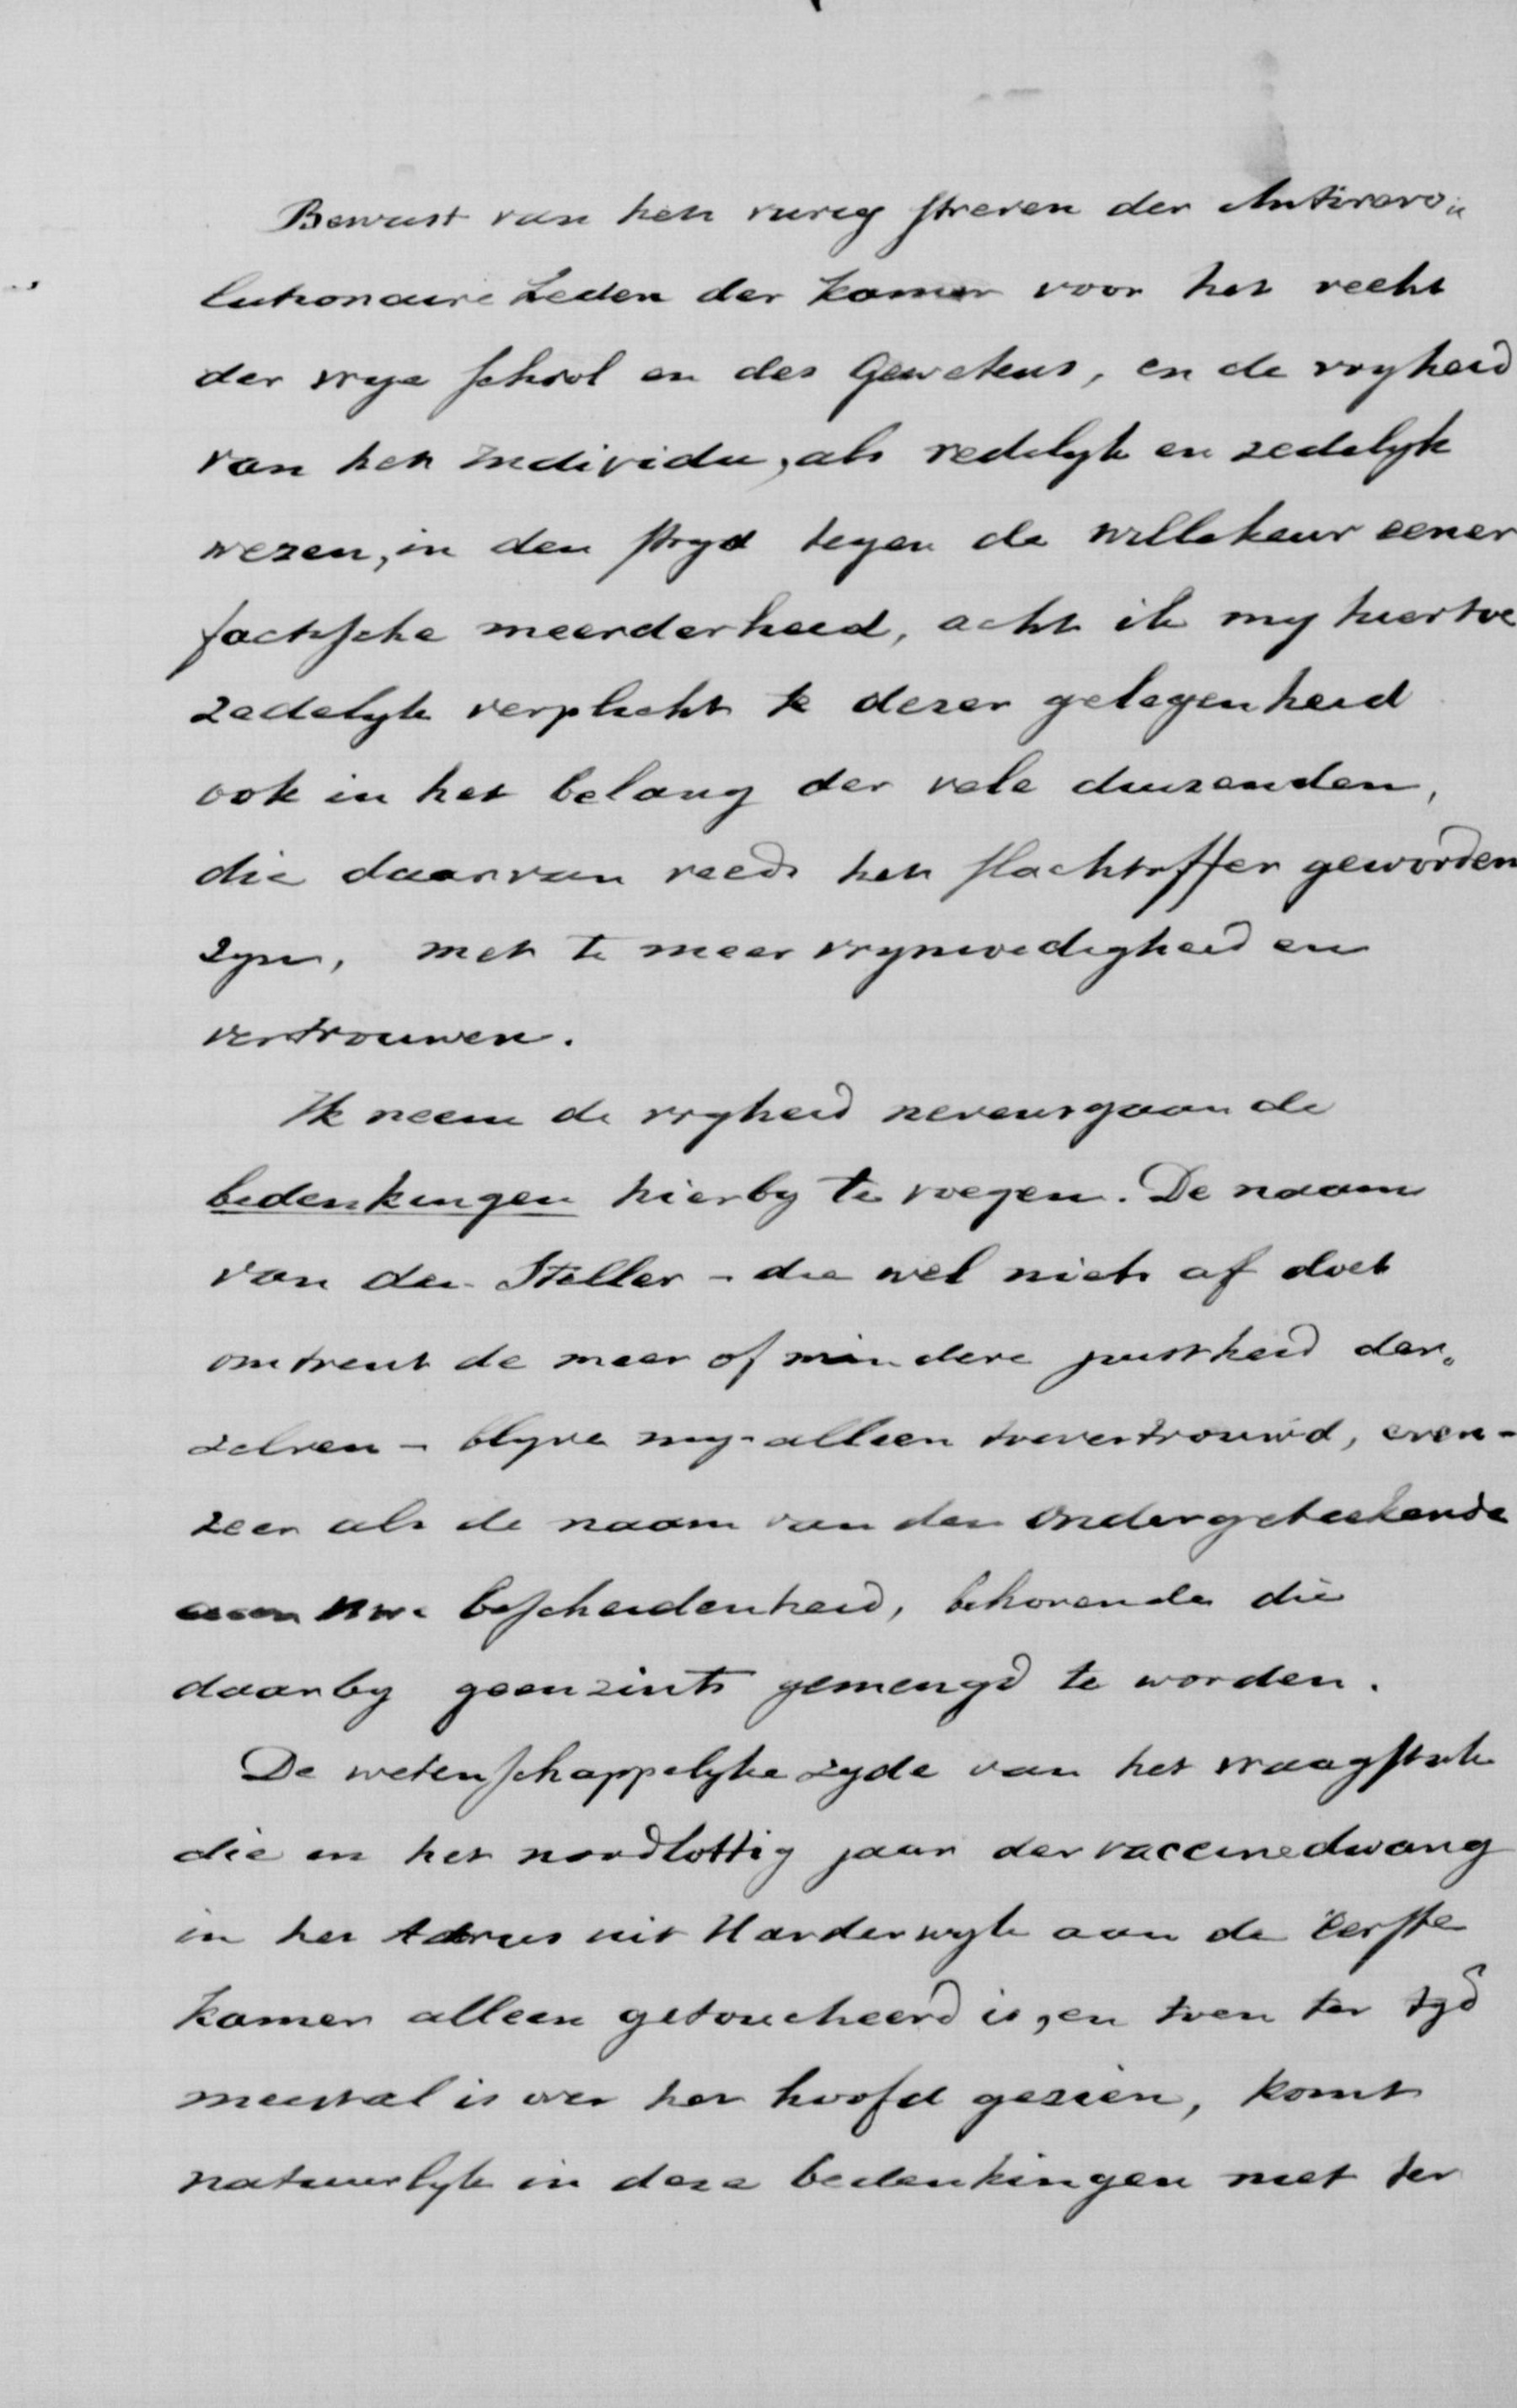 Bewust van het vurig streven der Antirevo„
lutionaire Leden der Kamer voor het recht
der vrye school en des Gewetens, en de vryheid
van het Individu, als redelyk en zedelyk
wezen, in den stryd tegen de willekeur eener
factische meerderheid, acht ik my hiertoe
zedelyk verplicht te dezer gelegenheid
ook in het belang der vele duizenden,
die daarvan reeds het slachtoffer geworden
zyn, met te meer vrymoedigheid en
vertrouwen.
Ik neem de vryheid nevensgaande
bedenkingen hierby te voegen. De naam
van den Steller - die wel niets af doet
omtrent de meer of mindere juistheid der„
zelven - blyve my alleen toevertrouwd, even-
zeer als de naam van den Ondergeteekende
aan Uwe bescheidenheid, behoorende die
daarby geenzints gemengd te worden.
De wetenschappelyke zyde van het vraagstuk
die in het noodlottig jaar der vaccinedwang
in het Adres uit Harderwyk aan de Eerste
Kamer alleen getoucheerd is, en toen ter tyd
meestal is over het hoofd gezien, komt
natuurlyk in deze bedenkingen niet ter